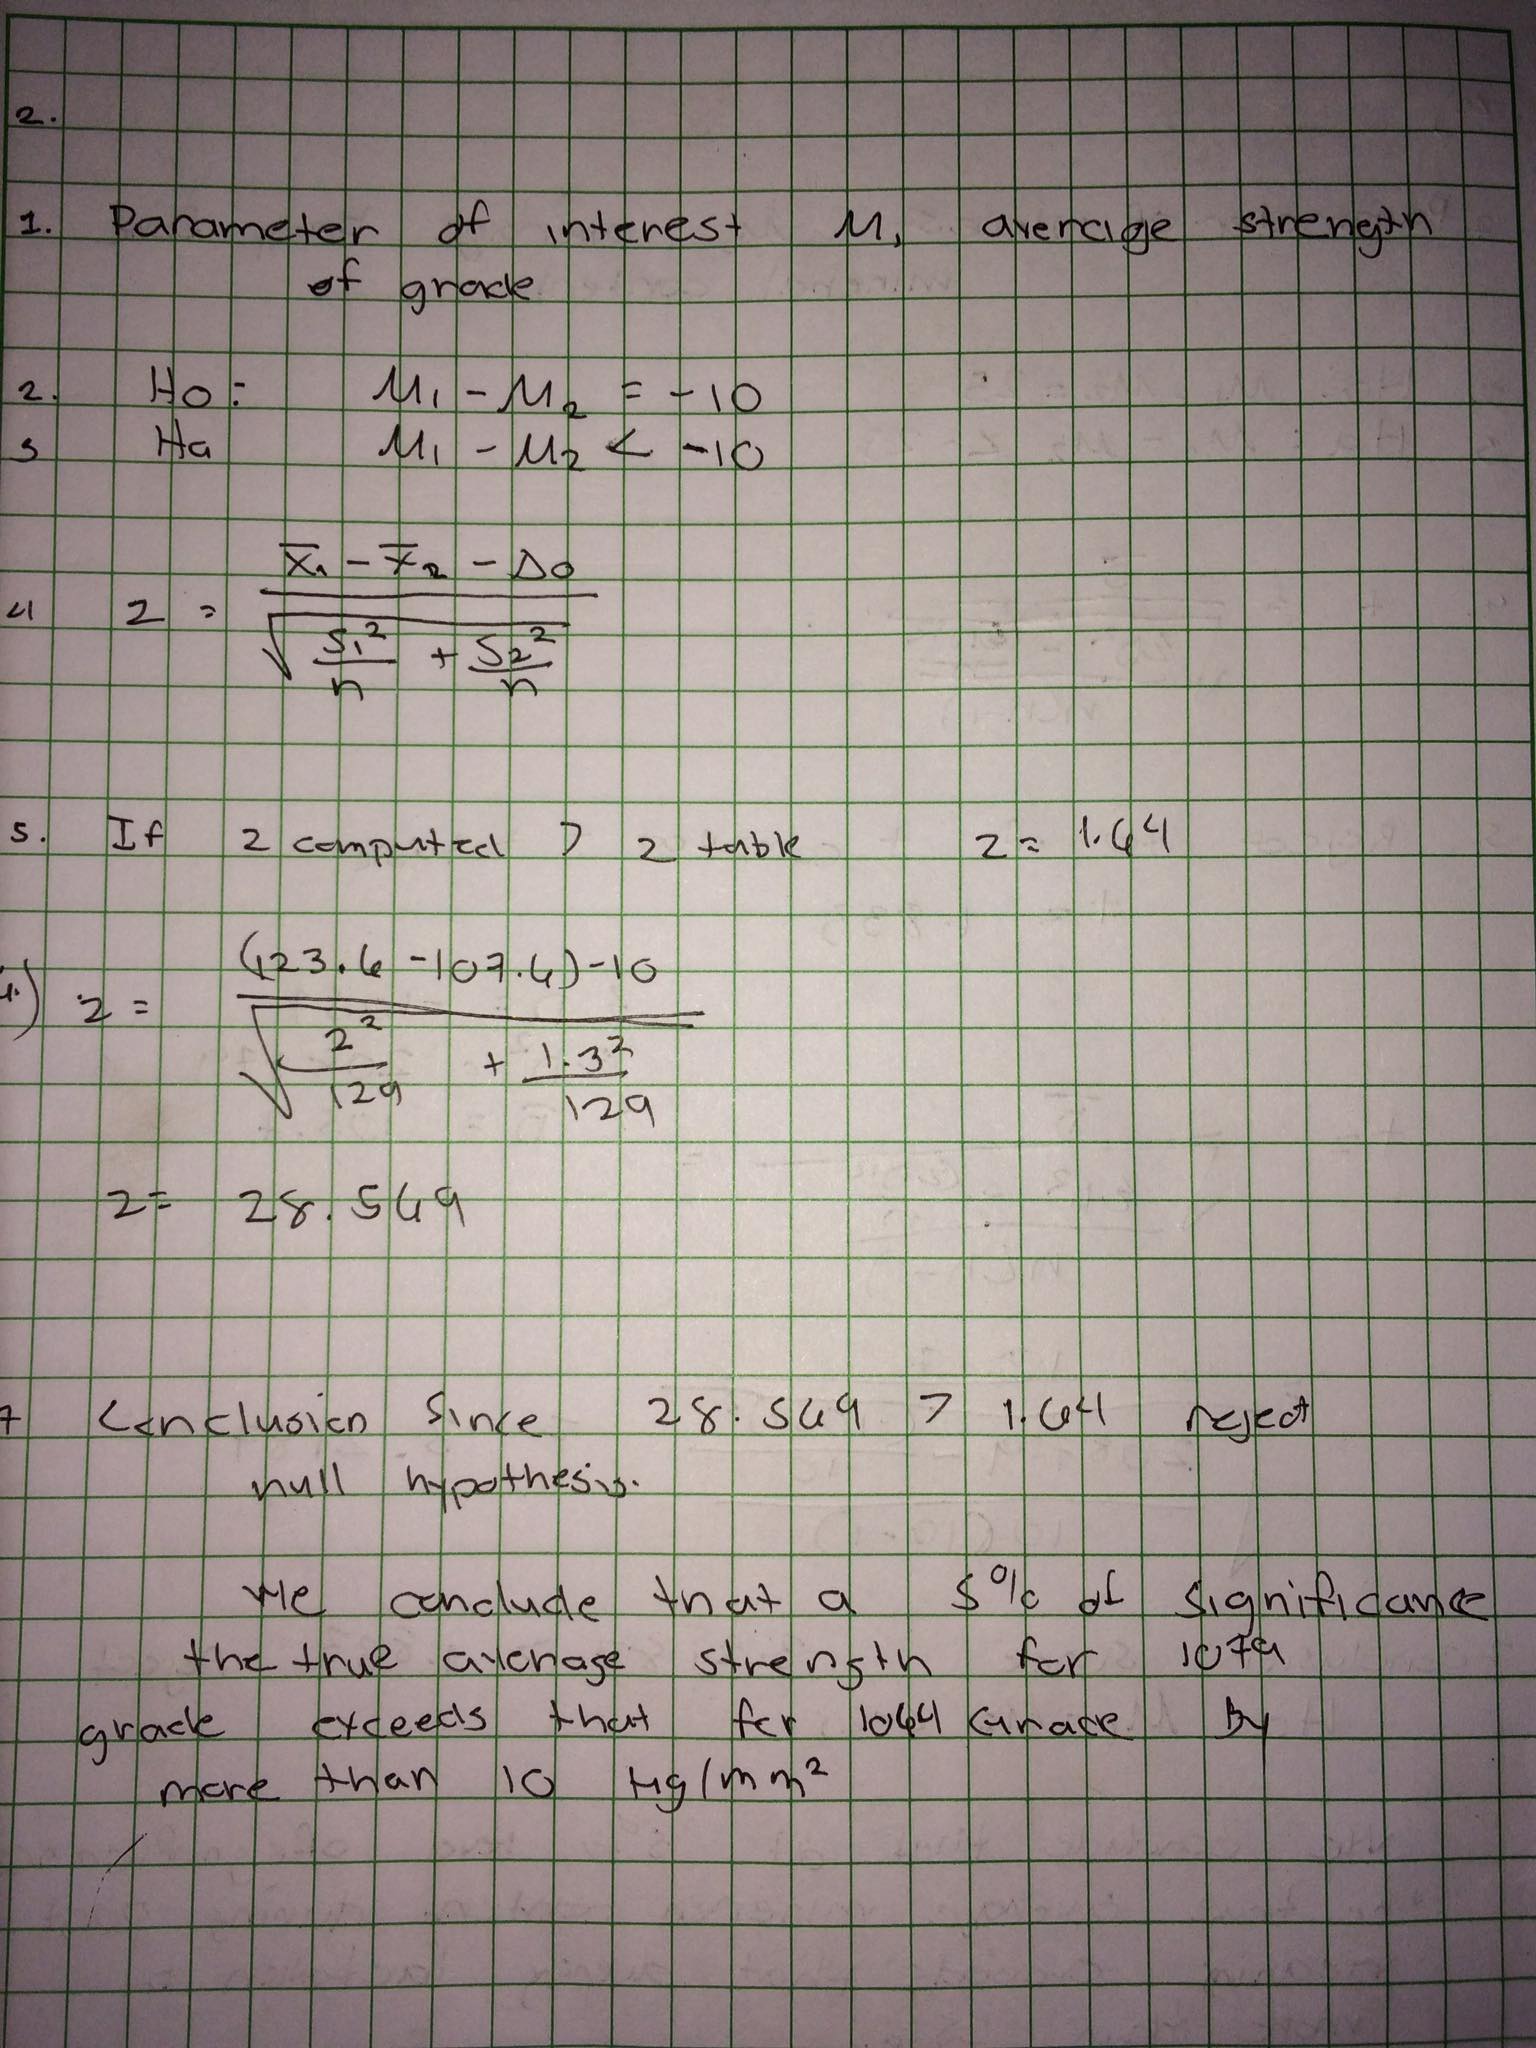 2.
1. Parameter of interest M, average strength
of grade
2. Ho: M1 - M2 = -10
3 Ha M1 - M2 < -10
x̄1 - x̄2 - Δ0
4 z = √ S1² / n + S2² / n
5. If z computed > z table z = 1.64
(123.6 - 107.6) - 10
z = √ 2² / 129 + 1.3² / 129
z = 28.569
7 Conclusion Since 28.569 > 1.64 reject
null hypothesis.
We conclude that a 5% of significance
the true average strength for 1079
grade exceeds that for 1064 Grade by
more than 10 Kg/mm²